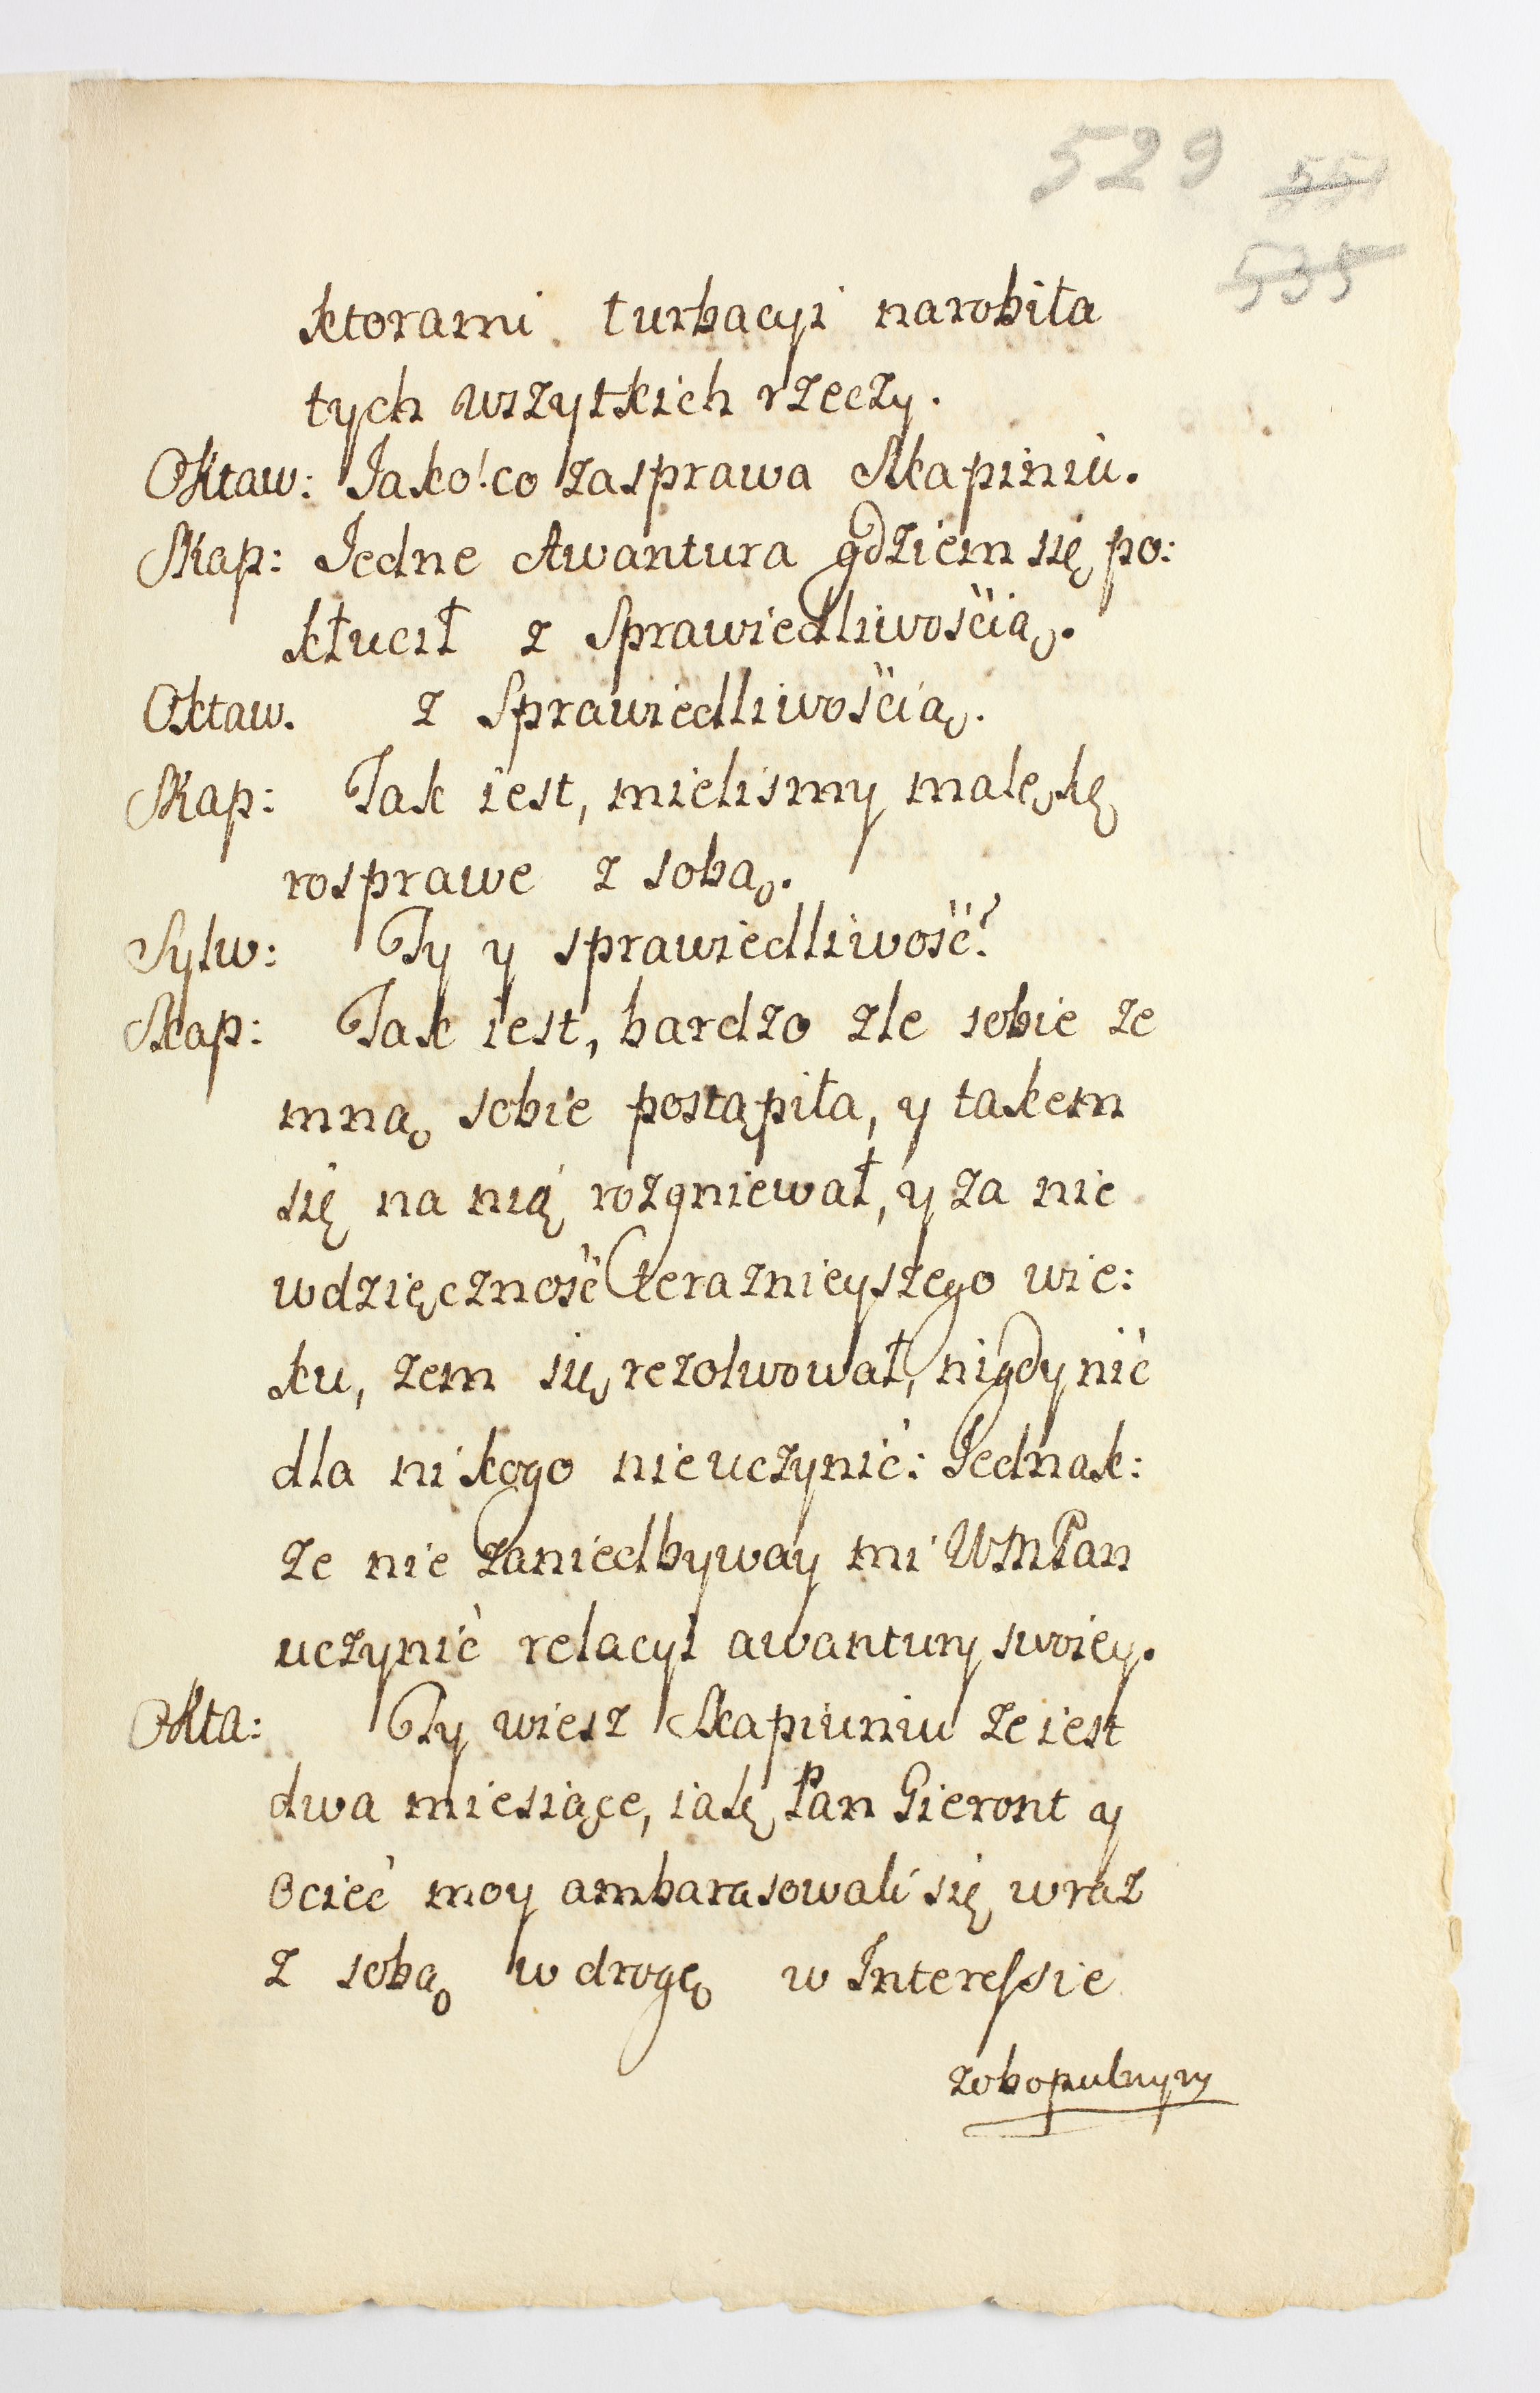 529 551
535
ktorami turbacyi narobiła
tych wszytkich rzeczy.
Oktaw: Jako! co za sprawa Skapiniu.
Skap: Jedne Awantura gdziem się po:
kłucił z Sprawiedliwośćią.
Oktaw. z Sprawiedliwośćią.
Skap: Tak iest, mielismy małę kę
rosprawe z sobą.
Sylw: Ty y sprawiedliwość?
Skap: Tak iest, bardzo zle sobie ze
mną sobie postąpiła, y takem
się na nią rozgniewał, y za nie
wdzięczność teraznieyszego wie:
ku, zem się rezolwował, nigdy nić
dla nikogo nie uczynić: Jednak:
ze nie zaniedbyway mi WMPan
uczynić relacyi awantury swoiey.
Okta: Ty wiesz Skapiuniu ze iest
dwa miesiące, iakę Pan Gieront y
Ocieć moy ambarasowali się wraz
z sobą w drogę w Interessie